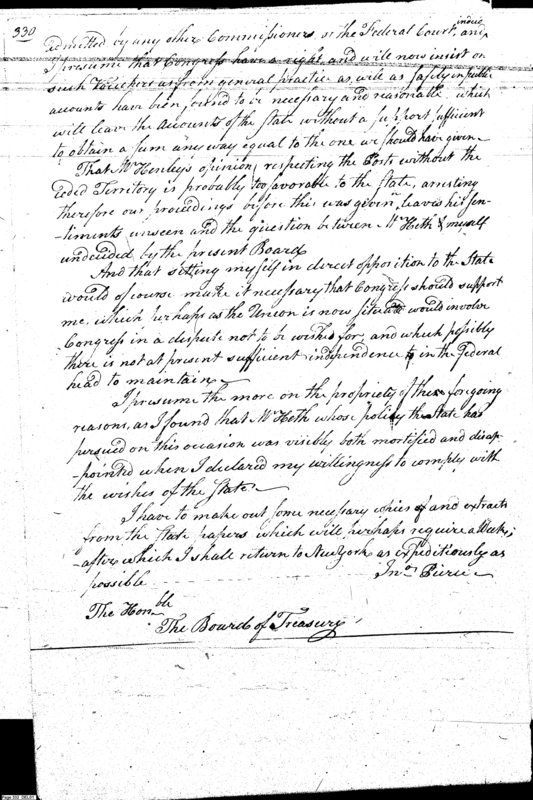 330
admitted by any other Commissioners or the Federal Court, and
I presume that Congress have a right and will now insist on
such Vouchers as from general practice as, will as safety in public
accounts have been found to be necessary and reasonable which
will leave the accounts of the State without a support sufficient
to obtain a sum any way equal to the one we should have given
That Mr Henley's opinion respecting the Posts without the
ceded Territory is probably too favorable to the State, arresting
therefore our proceedings before this was given, leaves his sen-
-timents unseen and the question between Mr Heth & myself
undecided by the present Board
And that setting myself in direct opposition to the State
would of course make it necessary that Congress should support
me, which perhaps as the Union is now would involve
Congress in a dispute not to be wished for, and which possibly
there is not at present sufficient independence in the Federal
head to maintain
I presume the more on the propriety of these foregoing
reasons, as I found that Mr Heth whose policy the State has
pursued on this occasion was visibly both mortified and disap-
-pointed when I declared my willingness to comply with
the wishes of the State
I have to make out some necessary copies of and extracts
from the State papers which will perhaps require a Week;
after which I shall return to New York as expeditiously as
possible
Jno Pierce
The Honble
The Board of Treasury